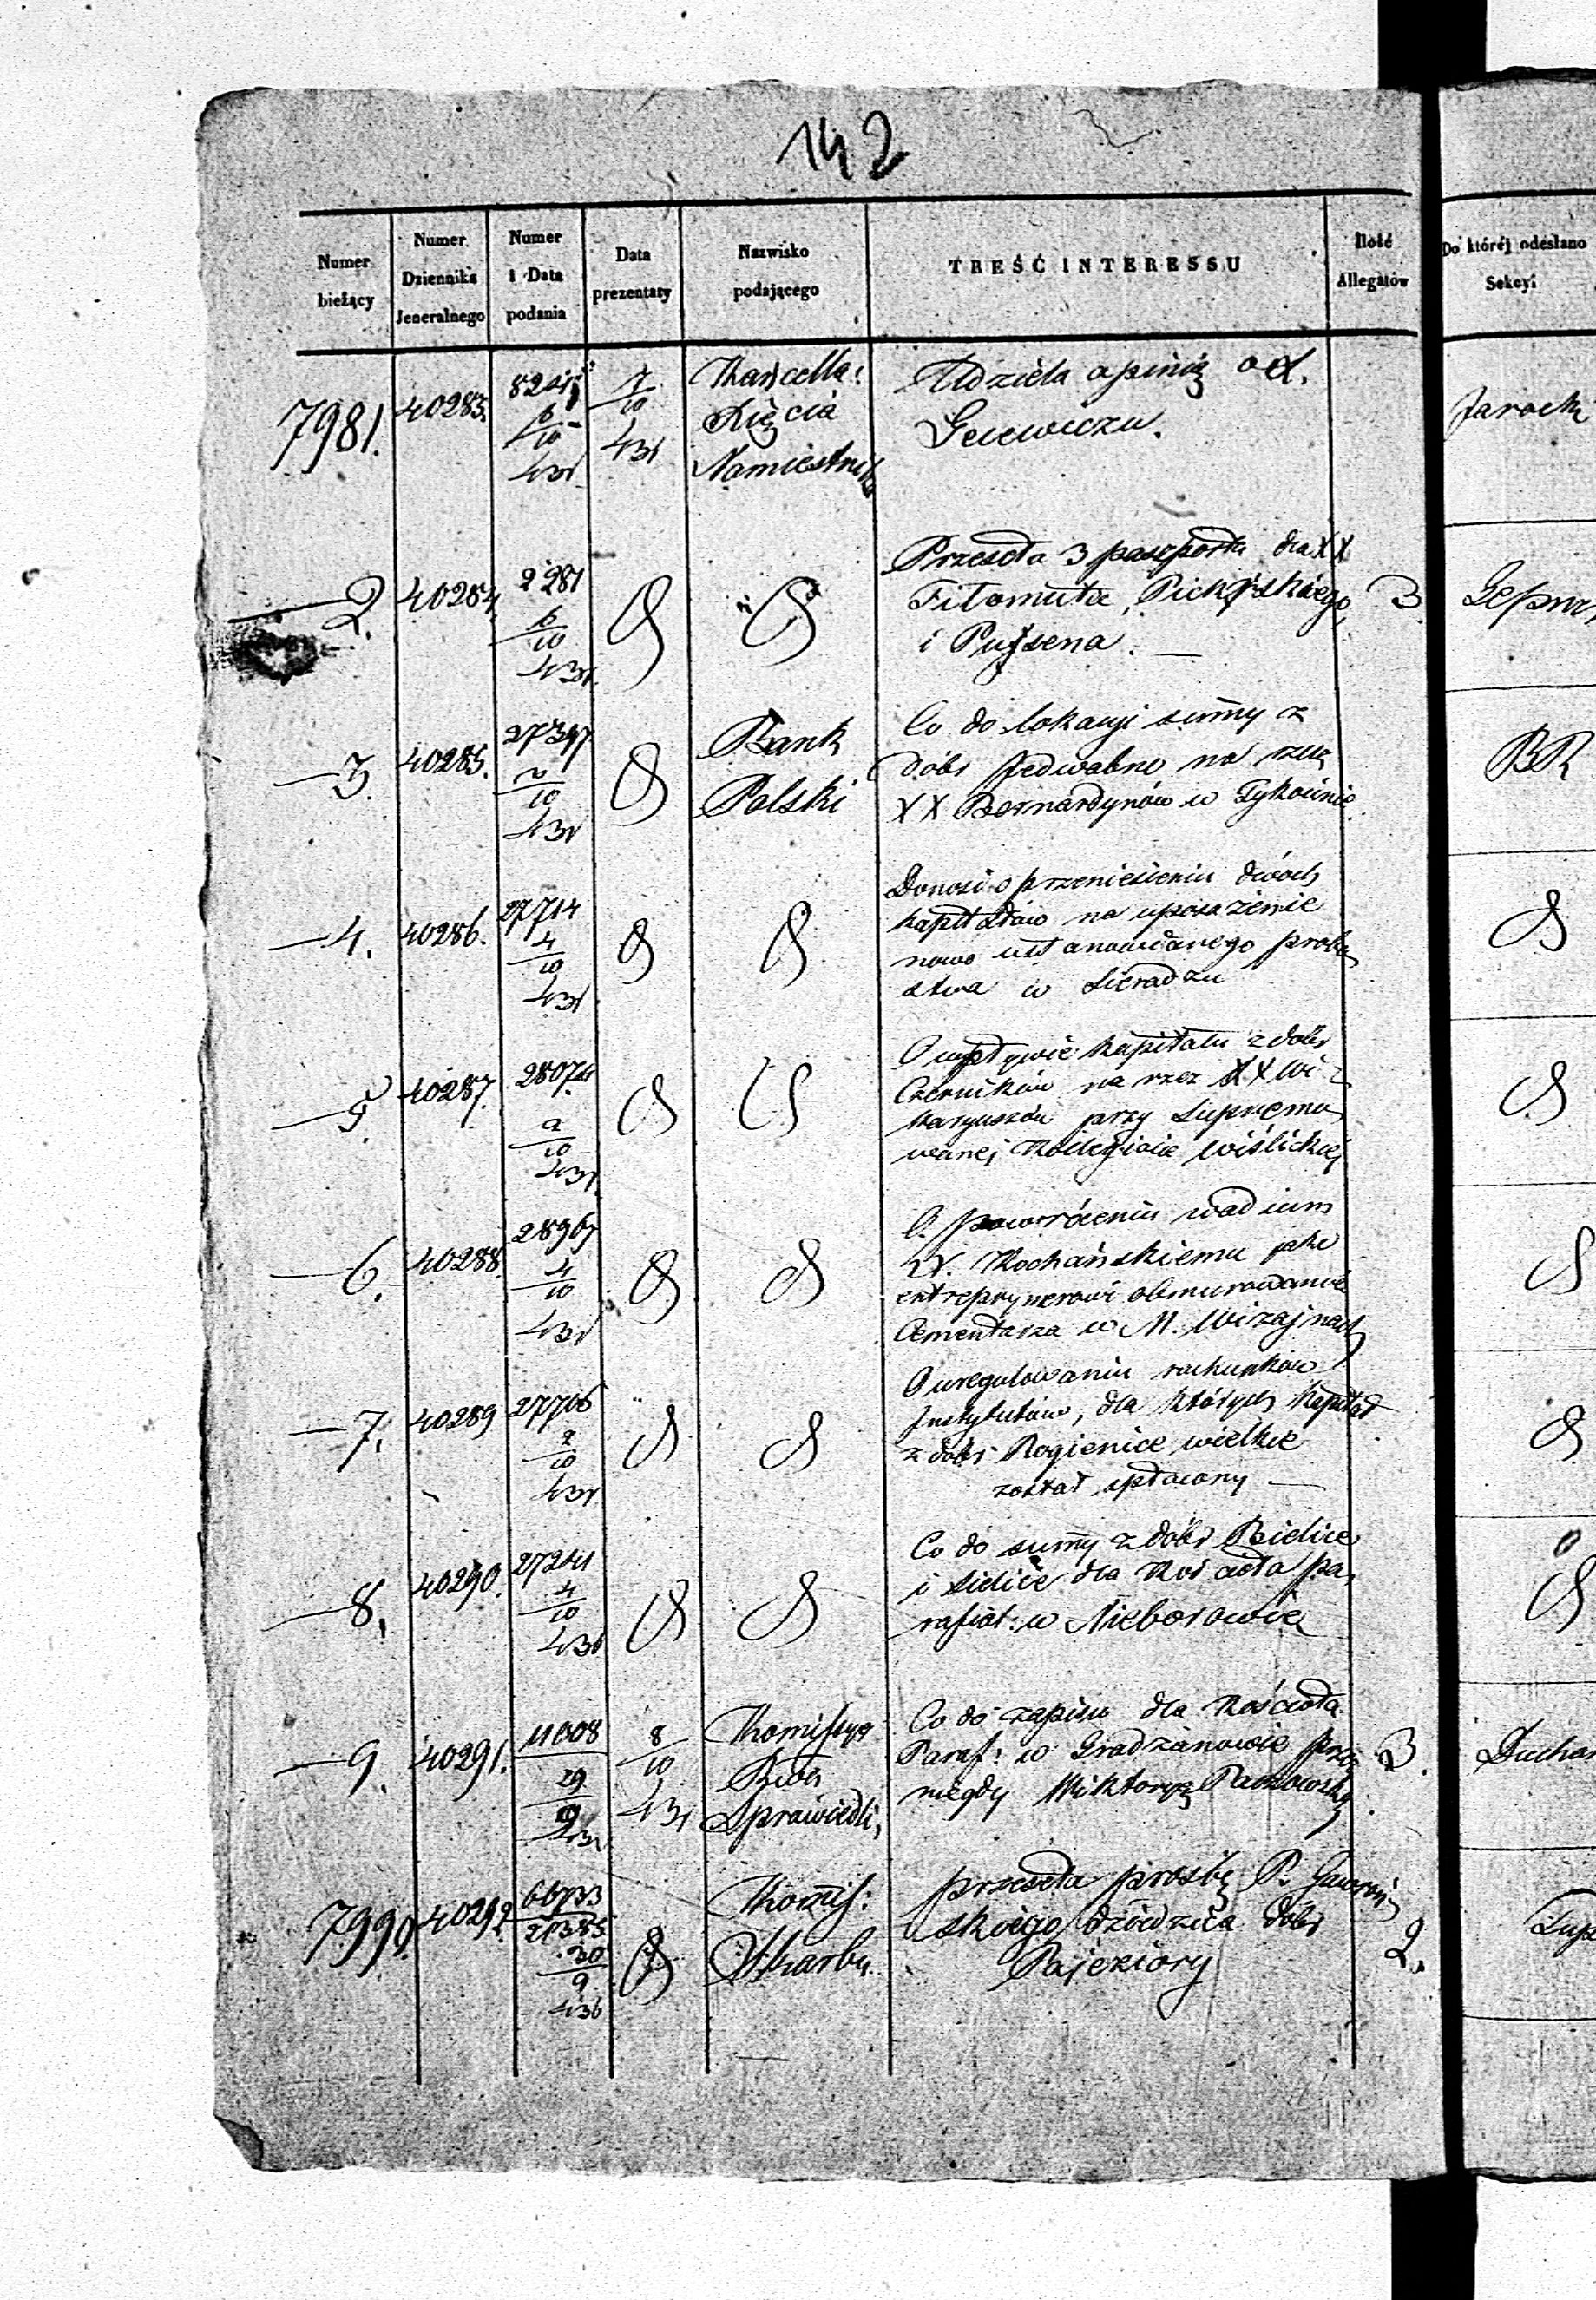 142
Numer bieżący
Numer Dziennika Jeneralnego
Numer i Data podania
Data prezentaty
Nazwisko podającego
TREŚĆ INTERESSU
Ilość Allegatów
Do której odesłano Sekcyi
7981. 40283. 6/10 7/10
Kancella:
Xięcia
Namiestnika
Udziela opinię o X.
Jarocki
2. 40284. 2281 6/10
Przeseła 3 paszporta dla XX
Fitomuta,
i
3
3. 40285. 27397 2/10
Bank
Polski
Co do lokacyi summy z
dóbr Jedwabne na rzecz
XX Bernardynów w Tykocinie
BR
4. 40286. 27714 4/10
Donosi o przeniesieniu dwóch
kapitałów na uposażenie
nowo ustanowionego probo
stwa w Sieradzu
5. 40287. 28074 2/10
O wpływie kapitału z dóbr
Czerników na rzecz XX Wi
karyuszów przy Supremo
wanej Kollegiacie Wiślickiej
6. 40288. 28967 4/10
O powróceniu wadium
P. Kochańskiemu jako
entreprynerowi obmurowania
Cementarza w M. Wizajnach
7. 40289 27706 2/10
O uregulowaniu rachunków
Instytutów, dla których kapitał
z dóbr Rogienice wielkie
został spłacony
8. 40290. 27241 4/10
Co do summy z dóbr Bielice
i Sielice dla Kościoła pa
rafial: w Nieborowie
9. 40291. 11008 29/9 8/10
Komissya
Rząd.
Sprawiedli,
Co do zapisu dla Kościoła
Paraf: w Gradzanowie przez
niegdy Wiktoryę
3.
7990. 40292. 66733 21385 30/9
Kommis:
Skarbu
przeseła prośbę P. Gawroń
skiego dziedzica dóbr
Pojeziory
2.